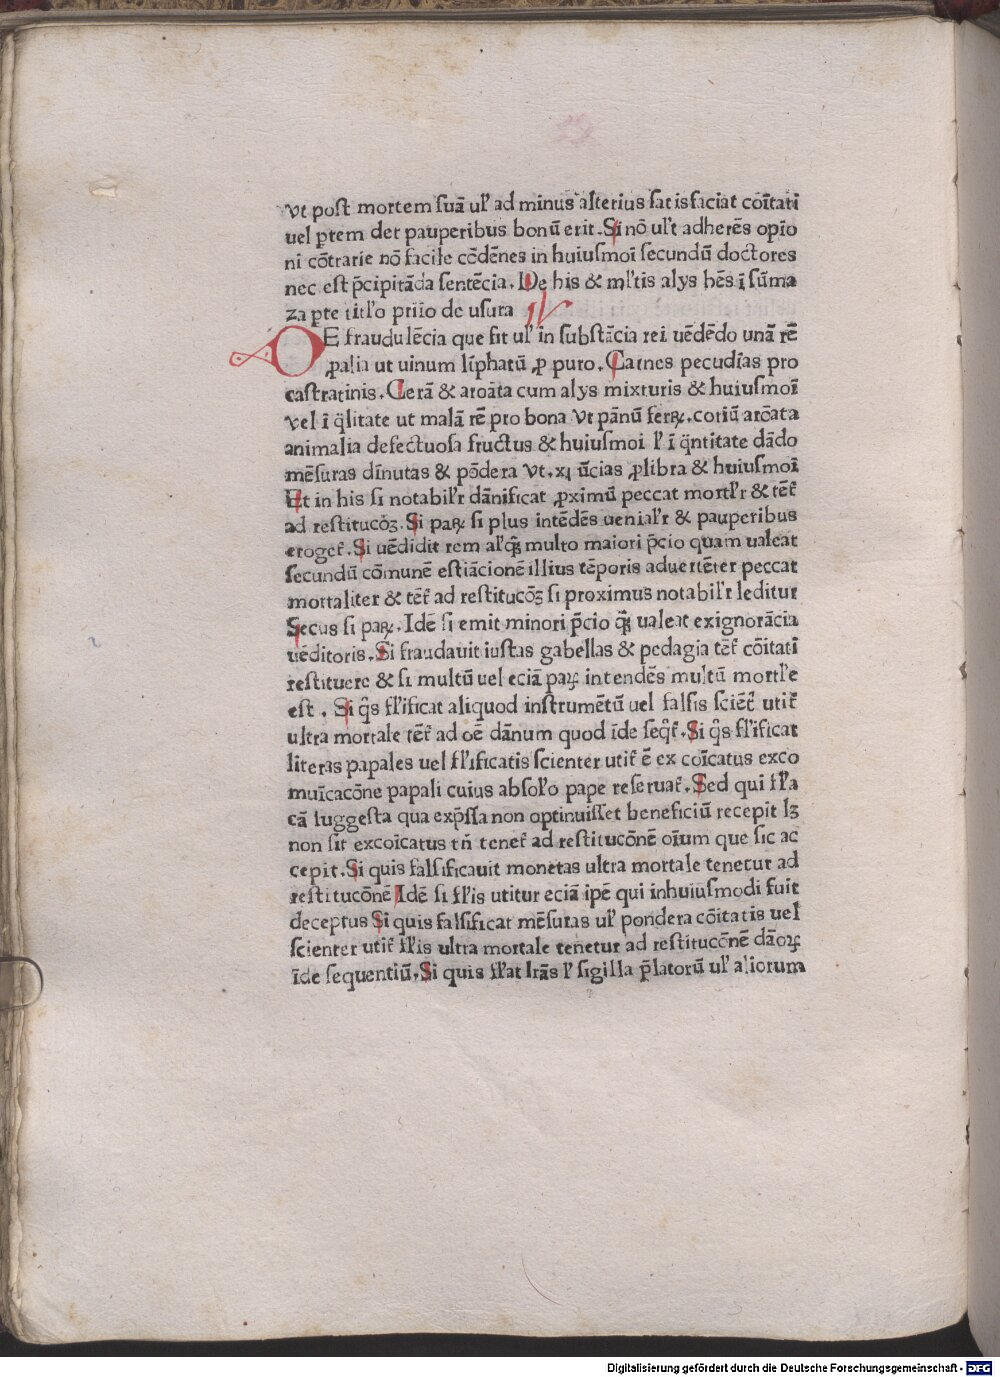 vt post mortem suā ul' ad minus alterius satisfaciat cōītati
uel ptem det pauperibus bonū erit. Si nō ul't adherēs opīo
ni cōtrarie nō facile cōdēnes in huiusmoī secundū doctores
nec est p̄cipitāda sentēcia. De his & ml'tis alys hēs ī sūma
za pte titl'o priīo de usura
DE fraudulēcia que fit ul' in substācia rei uēdēdo unā rē
ꝓ alia ut uinum līphatū ꝓ puro. Carnes pecudīas pro
castratinis. Cerā & aroāta cum alys mixturis & huiusmoī
vel ī q̄litate ut malā rē pro bona vt pānū ferꝝ. coriū arōata
animalia defectuosa fructus & huiusmoi l' ī q̄ntitate dādo
mēsuras dīnutas & pōdera vt. xi ūcias ꝓ libra & huiusmoī
Et in his si notabil'r dānificat ꝓximū peccat mortl'r & tēt̄
ad restitucōꝫ. Si paꝝ si plus intēdēs uenial'r & pauperibus
eroget̄. Si uēdidit rem al'qꝫ multo maiori p̄cio quam ualeat
secundū cōmunē estiācionē illius tēporis aduertēter peccat
mortaliter & tēt̄ ad restitucōꝫ si proximus notabil'r leditur
Secus si paꝝ. Idē si emit minori p̄cio qꝫ ualeat ex ignorācia
uēditoris. Si fraudauit iustas gabellas & pedagia tēt̄ cōītati
restituere & si multū uel eciā paꝝ intendēs multū mortl'e
est. Si q̄s fl'ificat aliquod instrumētū uel falsis sciēt̄ utit̄
ultra mortale tēt̄ ad oē dānum quod īde seq̄t̄. Si q̄s fl'ificat
literas papales uel fl'ificatis scienter utit̄ ē ex coīcatus exco
muīcacōne papali cuius absol'o pape reseruat̄. Sed qui fl'a
cā suggesta qua exp̄ssa non optinuisset beneficiū recepit lꝫ
non sit excoīcatus tn̄ tenet̄ ad restitucōnē oīum que sic ac
cepit. Si quis falsificauit monetas ultra mortale tenetur ad
restitucōnē Idē si fl'is utitur eciā ipē qui inhuiusmodi fuit
deceptus Si quis falsificat mēsuras ul' pondera cōītatis uel
scienter utit̄ fl'is ultra mortale tenetur ad restitucōnē dāoꝝ
īde sequentiū. Si quis fl'at lrās l' sigilla p̄latorū ul' aliorum
Digitalisierung gefördert durch die Deutsche Forschungsgemeinschaft - DFG